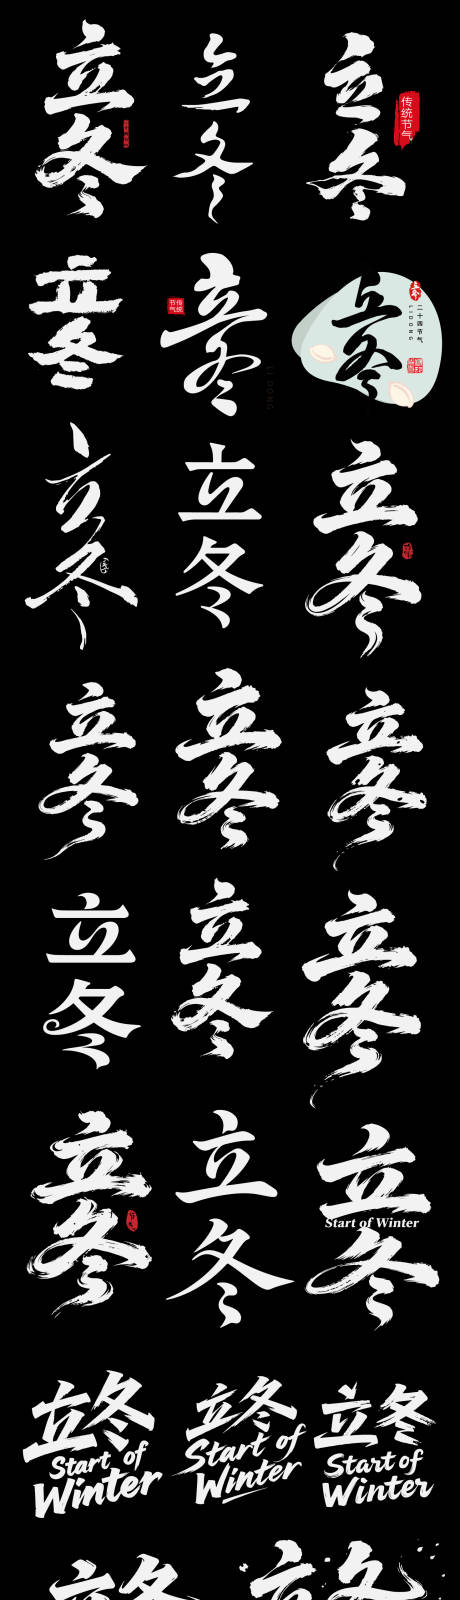 立冬
立冬
立冬
传统节气
立冬
立冬
传统
节气
LI DONG
立冬
立冬
二十四节气
LIDONG
立冬
立冬
立冬
立冬
立冬
立冬
立冬
立冬
立冬
立冬
节气
立冬
立冬
Start of Winter
立冬
Start of
Winter
立冬
Start of
Winter
立冬
Start of
Winter
立冬
立冬